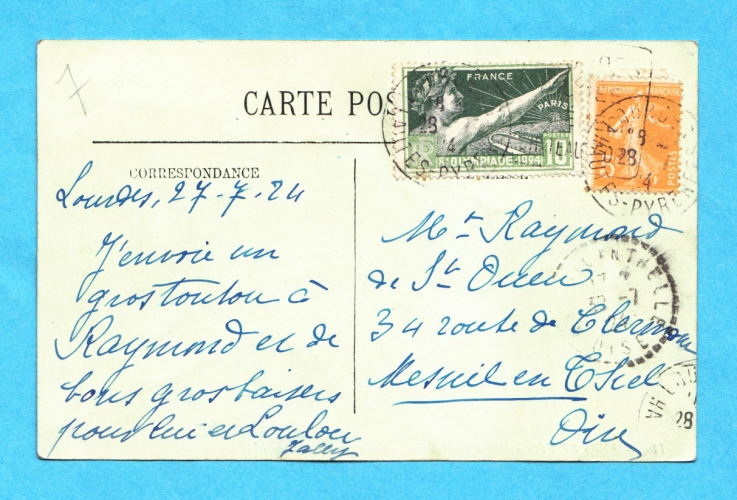 7
CARTE POS
FRANCE
PARIS
POSTES
8e OLYMPIADE-1924 10c
RÉPUBLIQUE FRANÇAISE
5c POSTES
CORRESPONDANCE
Lourdes, 27-7-24
J'envoie un
gros toutou à
Raymond et de
bons gros baisers
pour lui et Loulou
Mr Raymond
de St Ouen
34 route de Clermon
Mesnil en Thel
Oise
28
OISE
28